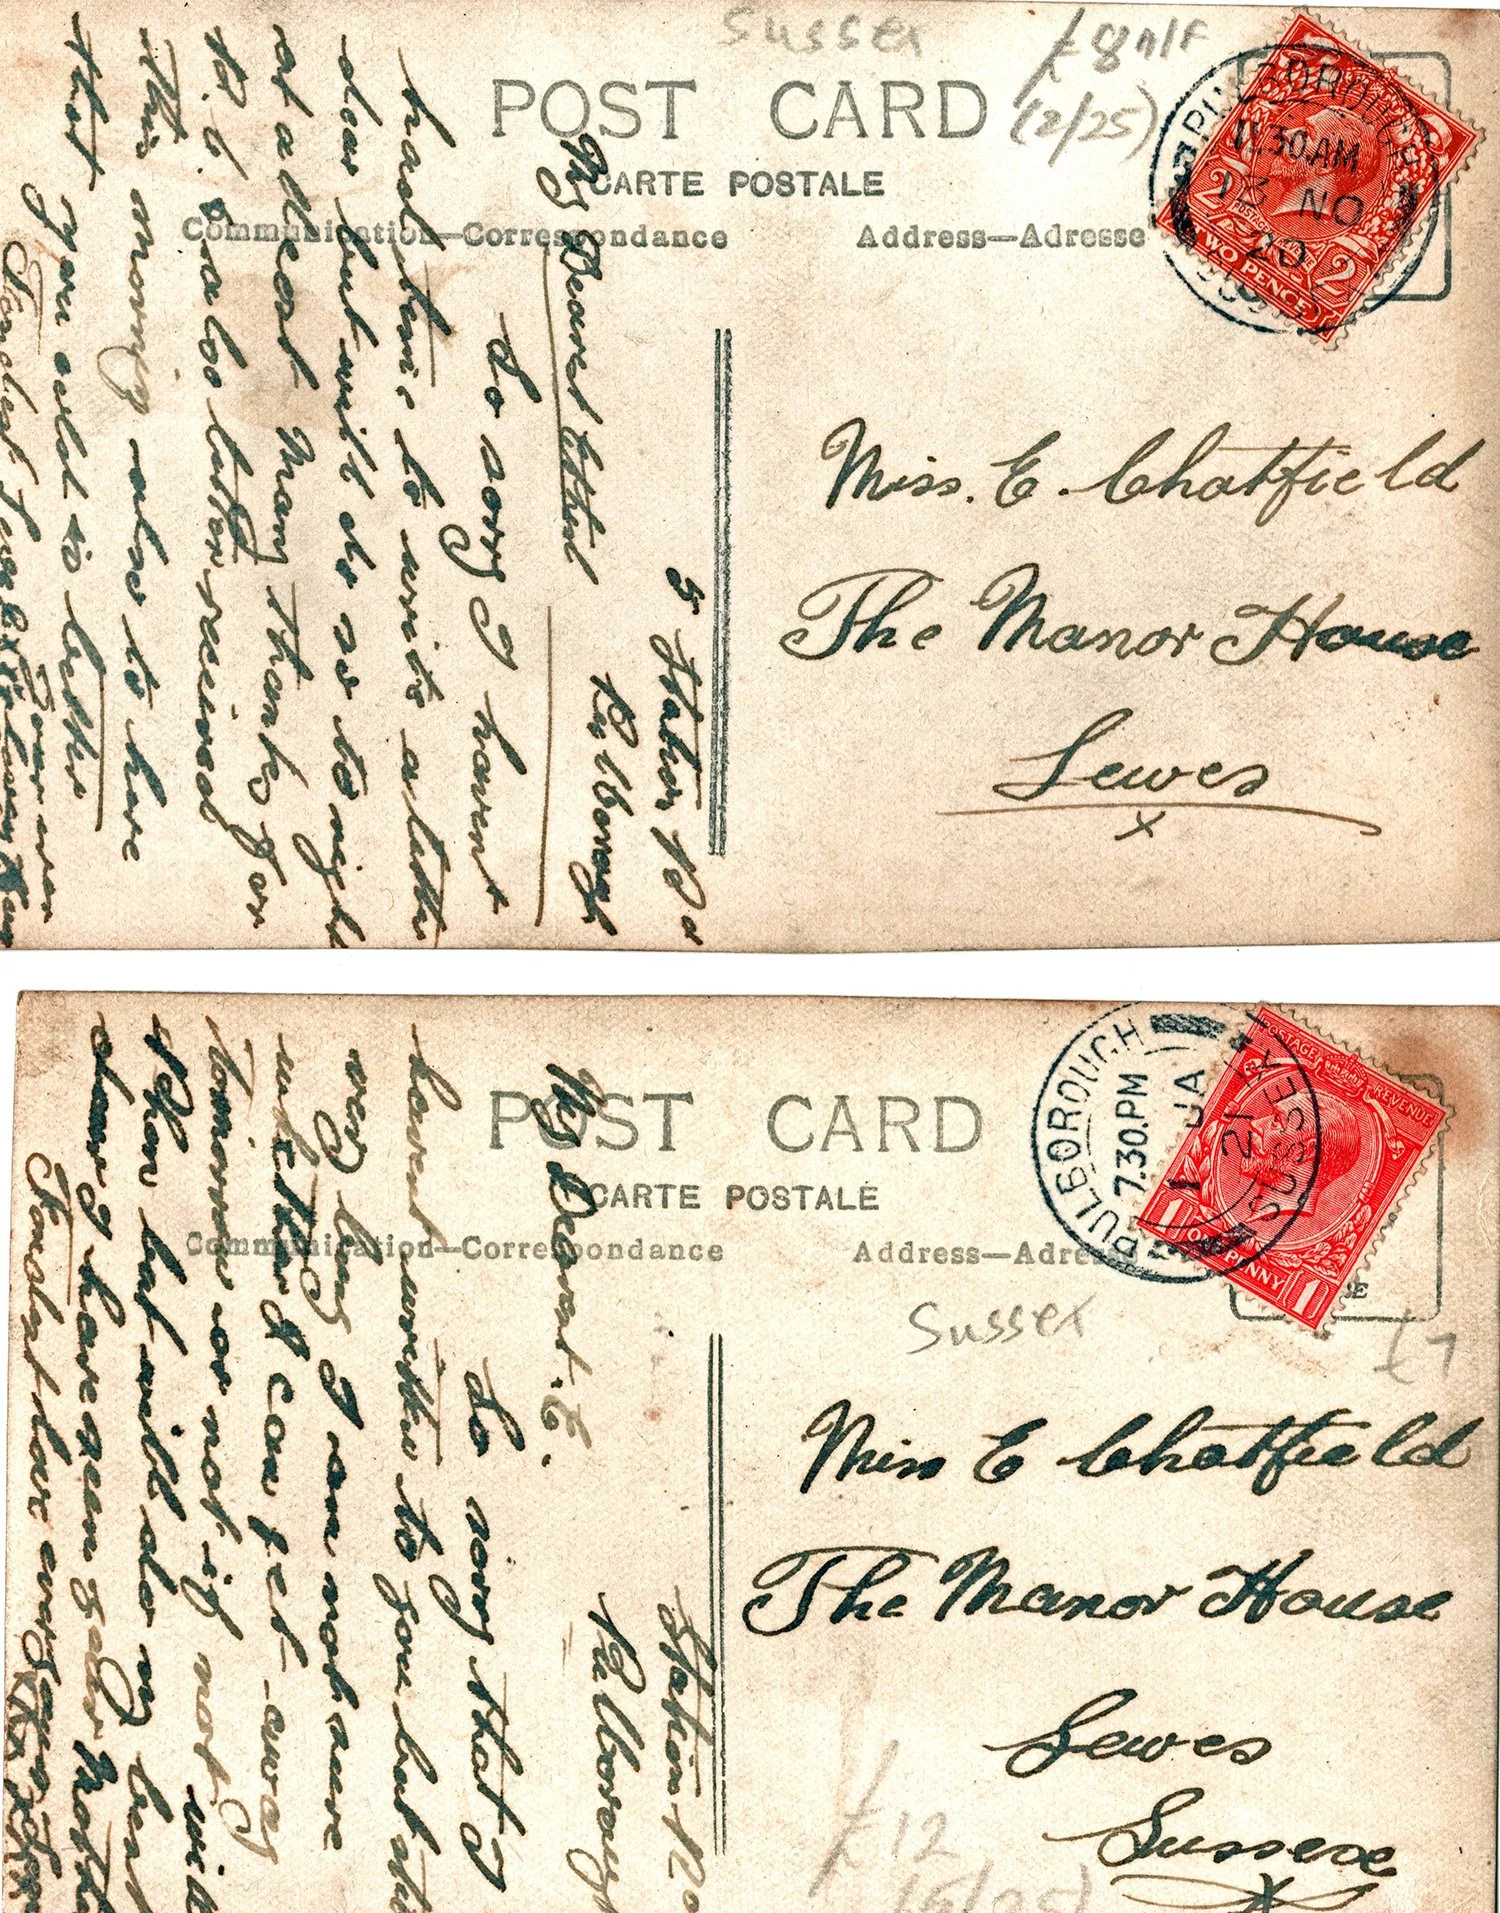 Sussex
£8 n/f
(2/25)
POST CARD
CARTE POSTALE
Communication—Correspondance
Address—Adresse
PULBOROUGH
11.30.AM
13 NO
20
TWO PENCE
2 2
Miss. E. Chatfield
The Manor House
Lewes
x
5 Station Rd
Pulborough
My Dearest Ethel
So sorry I havent
had time to write a letter
dear but will do so to night
at a dear Many thanks for
received
this morning also to here
that you are better
Fondest Love
POST CARD
CARTE POSTALE
Communication—Correspondance
Address—Adresse
PULBOROUGH
7.30.PM
1 JA
21
SUSSEX
POSTAGE REVENUE
1 ONE PENNY 1
Sussex
£7
Miss E Chatfield
The Manor House
Lewes
Sussex
£12
Station Rd
Pulborough
My Dearest. E.
So sorry that I
havent written to you but
very busy I am not sure
whether I can get away
tomorrow or not if not will
Phone but will do my best
dear I have seen your Mother
Fondest love